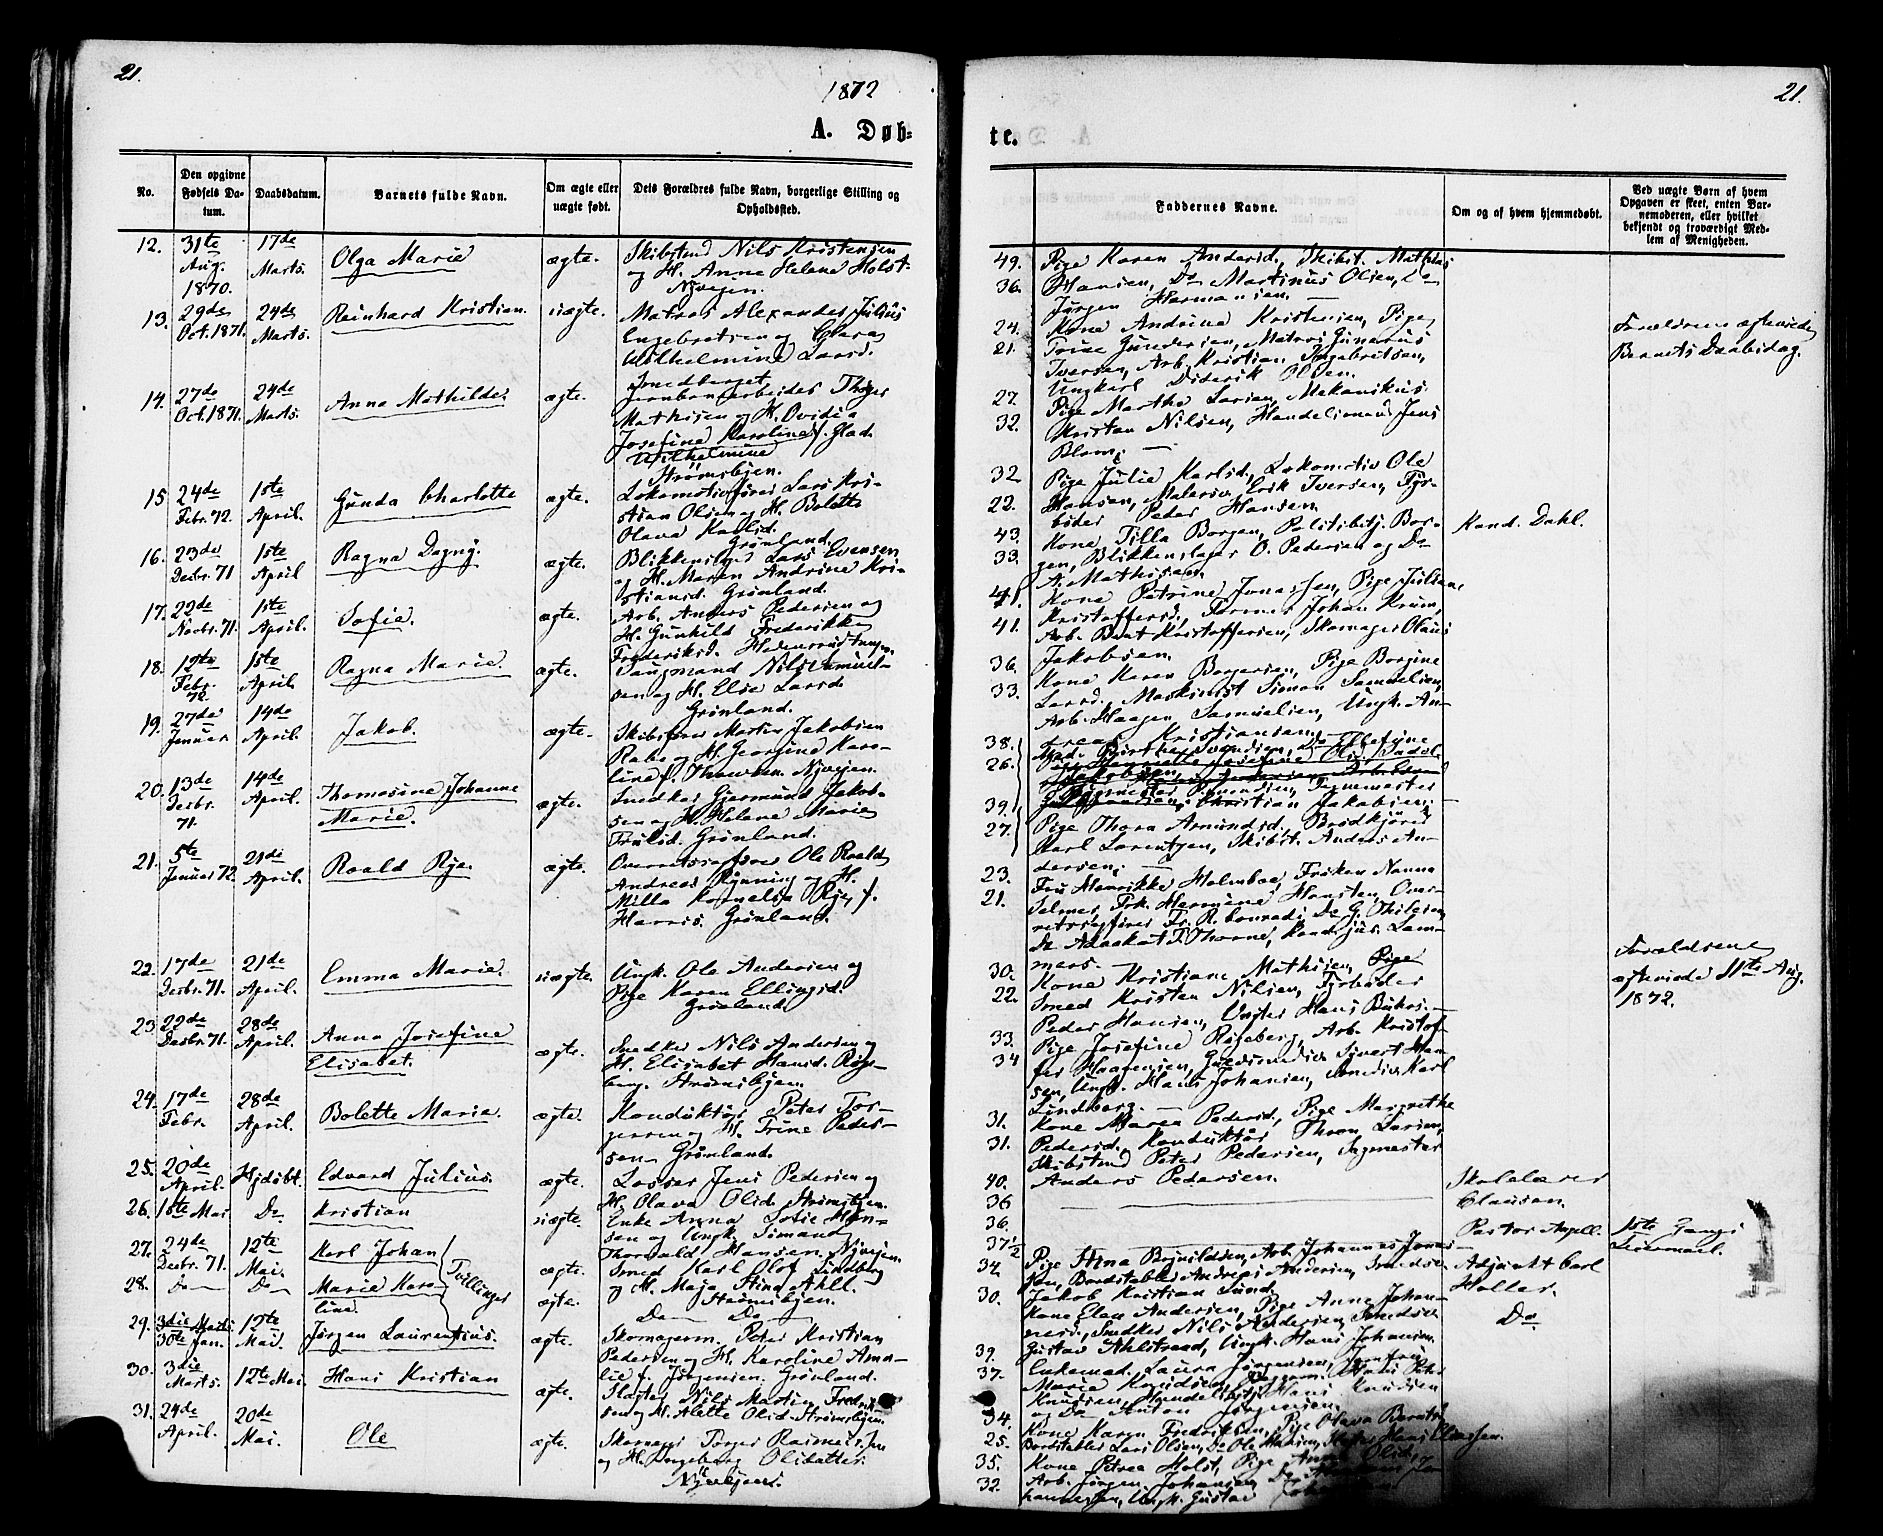 21.
1872
A. Døb-
No.
Den opgivne Fødsels Da-tum.
Daabsdatum.
Barnets fulde Navn.
Om ægte eller uægte født.
Dets Forældres fulde Navn, borgerlige Stilling og Opholdssted.
12. 31te Aug. 1870. 17de Marts. Olga Marie ægte. Skibstmd Nils Kristensen
og H. Anne Helene Holst.
Nyvejen.
13. 29de Oct. 1871. 24de Marts. Reinhard Kristian. uægte. Matros Alexander Julius
Engebretsen og Clara
Wilhelmine Larsd.
14. 27de Oct. 1871. 24de Marts. Anna Mathilde. ægte. Jernbanearbeider Thøger
Mathisen og H. Ovidia
Josefine Karoline f. Glad.
Wilhelmine
Strømsbyen.
15 24de Febr. 72. 1ste April. Gunda Charlotte ægte. Lokomotivfører Lars Kri-
stian Olsen og H. Bolette
Olava Karlsd.
Grønland.
16. 23de Desbr. 71 1ste April Ragna Dagny. ægte. Blikkenslager Lars Evensen
og H. Maren Andrine Kri-
stiansd. Grønland.
17. 22de Novbr. 71. 1ste April. Sofie. ægte. Arb. Anders Pedersen og
H. Gunhild Frederikke
Frederiksd.
18. 12te Febr. 72. 1ste April. Ragna Marie. ægte. Nils Samuel-
sen og H. Elise Larsd.
Grønland.
19. 27de Januar. 14de April. Jakob. ægte. Skibsfører Morten Jakobsen
Rabe og H. Georgine Karo-
line f. Thowsen. Nyvejen.
20. 13de Desbr. 71. 14de April. Thomasine Johanne
Marie. ægte. Snedker Gjermund Jakob-
sen og H. Helene Marie
Trulsd. Grønland.
21. 5te Januar 72. 21de April. Roald Rye. ægte. Overretssagfører Ole Roald
Andreas Rynning og H.
Milla Kornelia Rye f.
Harris. Grønland.
22. 17de Desbr. 71. 21de April. Emma Marie. uægte. Ungk. Ole Andersen og
Pige Karen Ellingsd.
Grønland
23. 22de Desbr. 71. 28de April. Anna Josefine
Elisabet. ægte. Snedker Nils Andersen og
H. Elisabet Hansd. Ryge-
berg. Strømsbyen.
24. 17de Febr. 28de April. Bolette Marie. ægte. Konduktør Peter Tor-
gersen og H. Trine Peder-
sen Grønland.
25. 20de April. Hjdøbt. Edvard Julius. ægte. Losser Jens Pedersen og
H. Olava Olsd. Strømsbyen.
26. 1ste Mai Do Kristian uægte. Enke Anna Sofie Han-
sen og Ungk. Simand
Thorvald Hansen. Nyvejen.
27. 24de Desbr. 71. 12te Mai. Karl Johan ægte. Smed Karl Olof Lindberg
og H. Maja Stina Ahll.
Strømsbyen.
28. Do Do Marie Karo-
line Tvillinger ægte. Do Do
29. 3die Marts 30te Jan. 12te Mai. Jørgen Laurentius. ægte. Skomagerm. Peter Kristian
Pedersen og H. Karoline Ama-
lie f. Jørgensen. Grønland.
30. 3die Marts. 12te Mai. Hans Kristian ægte. Slagter Nils Martin Fredrik-
sen og H. Alette Olsd. Strømsbyen.
31. 24de April. 20de Mai. Ole ægte. Skomager Torger Rasmussen
og H. Ingeborg Olsdatter.
Nybyen.
21.
te.
Faddernes Navne.
Om og af hvem hjemmedøbt.
Ved uægte Børn af hvem Opgaven er skeet, enten Bar-nemoderen, eller hvilket bekjendt og troværdigt Med-lem af Menigheden.
49. Pige Karen Andersd., Skibst. Mathias
36. Hansen, Do Martinus Olsen, Do
Jørgen Hermansen.
24. Kone Andrine Kristensen, Pige
21. Trine Gundersen, Matros Gunerius
Iversen, Arb. Kristian Ingebretsen,
Ungkarl Diderik Olsen.
Forældrene ægteviede
Barnets Daabsdag.
27. Pige Marthe Larsen, Mekanikus
32. Kristen Nilsen, Handelsmand Jens
Blom.
32 Pige Julie Karlsd., Lokomotiv Ole
22. Hansen, Malersv. Erik Iversen, Fyr-
bøder Peder Hansen.
43. Kone Tilla Borgen, Politibetj. Bor-
33. gen, Blikkenslager O. Pedersen og Do
A. Mathisen.
Kand. Dahl.
41. Kone Petrine Jonassen, Pige Juliane
41. Kristoffersd., Former Johan Krum,
Arb. Bent Kristoffersen, Skomager Olaus
Jakobsen.
36. Kone Karen Borgersen, Pige Borgine
33. Larsd. Maskinist Simon Samuelsen,
Arb. Haagen Samuelsen, Ungk. An-
dreas Kristiansen.
38.
26.
39.
27. Pige Thora Amundsd. Brødkjører
Karl Lorentzen, Skibst. Anders An-
dersen.
23. Fru Henrikke Holmboe, Frøken Nanna
21. Selmer, Frk. Hermine Hansten, Over-
retssagfører Fr. R. Conradi, Do G. Thilesen,
Do Advokat F. Thorne, Kand. jus. Lam-
mers.
30. Kone Kristiane Mathisen, Pige
22. Smed Kristen Nilsen, Fyrbøder
Peder Hansen,
Forældrene
ægteviede 11te Aug.
1872.
33. Pige Josefine Rygeberg, Arb. Kristof-
34 fer Haagensen, Guldsmedsv. Sivert Han-
sen, Ungk. Hans Johansen, Smedsv. Karl
Lindberg.
31. Kone Maren Pedersd., Pige Margrethe
31. Pedersd. Konduktør Thron Larsen,
Skibstmd Peter Pedersen, Sagmester
40. Anders Pedersen.
36
Skolelærer
Clausen.
36.
37 1/2
Pastor Appell.
1ste Gangs
Leiermaal.
34. Pige Stina Brynildsen, Arb. Johannes Jonas-
sen, Bordstabler Andreas Andersen, Smedsv.
30. Jakob Kristian Lund.
Adjunkt Carl
Holler.
Kone Elen Andersen, Pige Anne Johan-
nesd., Snedker Nils Andersen, Smedsv.
Gustav Ahlstrand, Ungk. Hans Johansen.
Do.
39. Enkemad. Laura Jørgensen, Jomfru
37. Marie Knudsen,
Knudsen,
og Do Anton Jørgensen.
34. Kone Karen Fredriksen, Pige Olava Berntsd.
25. Bordstabler Lars Olsen, Do Ole Hansen, Hans Clausen.
35. Kone Petrea Holst, Pige Anne Olsd.
32. Arb. Jørgen Johansen, Do Jo-
hannessen, Ungk. Gustav